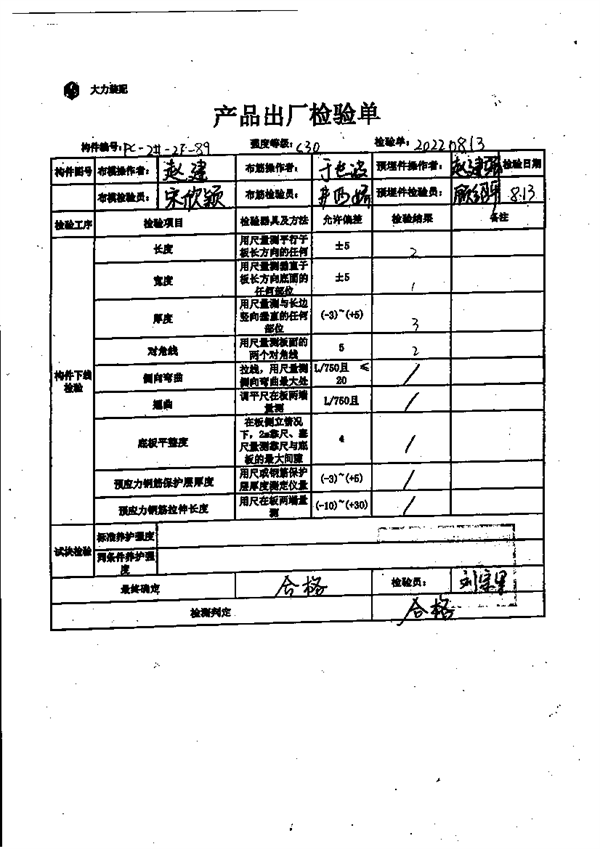 大力装配
产品出厂检验单
构件编号: PC-2#-2F-89 强度等级: C30 检验单: 20220813
构件图号 布模操作者: 赵建 布筋操作者: 预埋件操作者: 赵建 检验日期
布模检验员: 宋欣颖 布筋检验员: 预埋件检验员: 8.13
检验工序 检验项目 检验器具及方法 允许偏差 检验结果 备注
构件下线检验
长度 用尺量测平行于板长方向的任何 ±5 2
宽度 用尺量测垂直于板长方向底面的任何部位 ±5 1
厚度 用尺量测与长边竖向垂直的任何部位 (-3)~(+5) 3
对角线 用尺量测板面的两个对角线 5 2
侧向弯曲 拉线,用尺量测侧向弯曲最大处 L/750且 ≤20 /
翘曲 调平尺在板两端量测 L/750且 /
底板平整度 在板侧立情况下,2m靠尺、塞尺量测靠尺与底板的最大间隙 4 /
预应力钢筋保护层厚度 用尺或钢筋保护层厚度测定仪量 (-3)~(+5) /
预应力钢筋拉伸长度 用尺在板两端量测 (-10)~(+30) /
试块检验 标准养护强度
同条件养护强度
最终确定 合格 检验员:
检测判定 合格